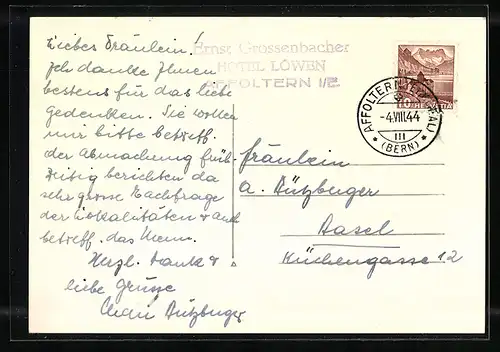 Liebes Fräulein!
Ich danke Ihnen
bestens für das liebe
Gedenken. Sie wollen
mir bitte betreff.
der Abmachung früh-
zeitig berichten da
sehr grosse Nachfrage
der Lokalitäten & auch
betreff. das Menu.
Herzl. Dank &
liebe Grüsse
Bützburger
Ernst Grossenbacher
HOTEL LÖWEN
AFFOLTERN i/E.
AFFOLTERN (EMMENTAL)
-4.VIII.44
III
* (BERN) *
10
HELVETIA
Fräulein
A. Bützburger
Basel
Küchengasse 12